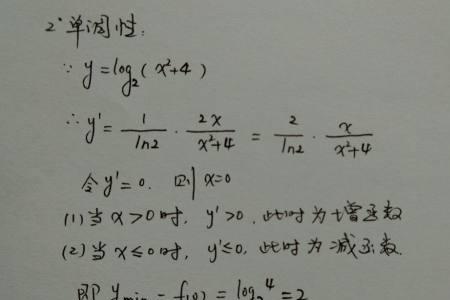 2° 单调性:
∵ y = log₂(x²+4)
∴ y' = 1/ln2 · 2x/(x²+4) = 2/ln2 · x/(x²+4)
令 y'=0. 则 x=0
(1) 当 x>0 时, y'>0. 此时为增函数
(2) 当 x≤0 时, y'≤0, 此时为减函数.
即 y min = f(0) = log₂4 = 2